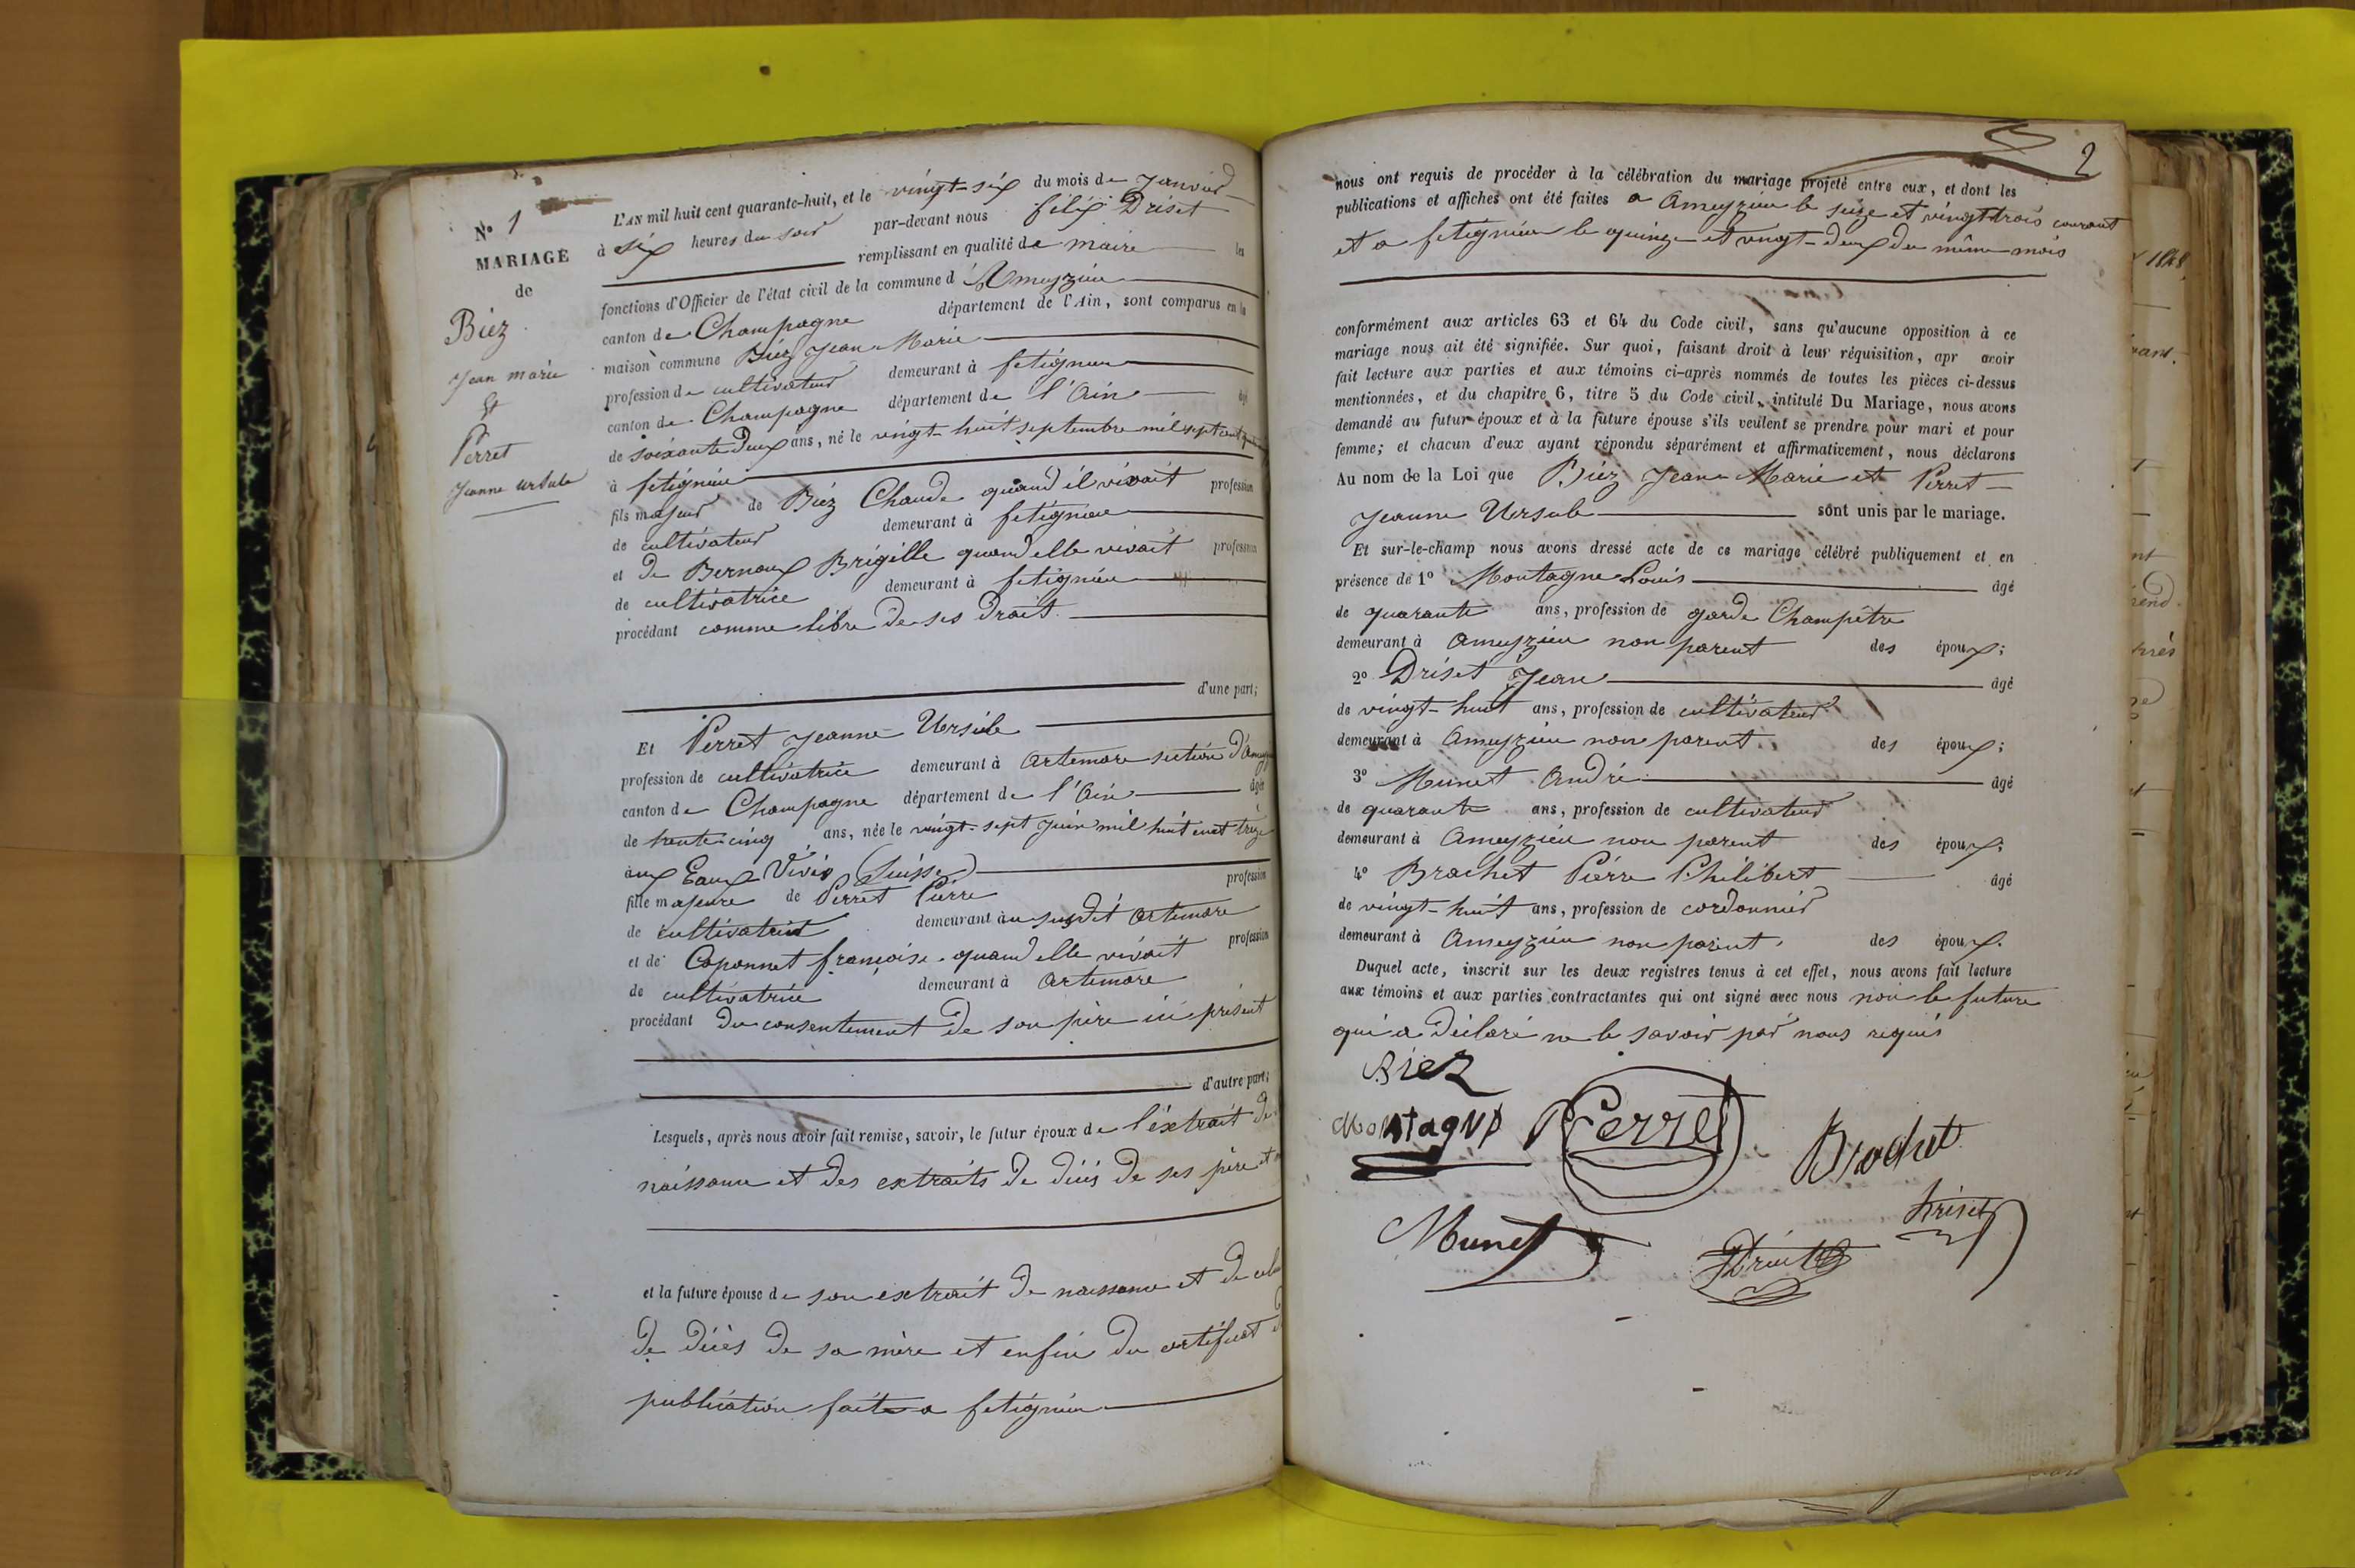 N° 1
MARIAGE
de
Biez
Jean marie
Et
Perret
Jeanne Ursule
L'AN mil huit cent quarante-huit, et le vingt-six du mois de Janvier
à six heures du soir par-devant nous félix Driset
remplissant en qualité de maire les
fonctions d'Officier de l'état civil de la commune d'Ameyzieu
canton de Champagne département de l'Ain, sont comparus en la
maison commune Biez Jean-Marie
profession de cultivateur demeurant à fitignieu
canton de Champagne département de l'Ain âgé
de soixante deux ans, né le vingt-huit septembre mil sept cent
à fitignieu
fils majeur de Biez Claude quand il vivait profession
de cultivateur demeurant à fitignieu
et de Bernoux Brigille quand elle vivait profession
de cultivatrice demeurant à fitignieu
procédant comme libre de ses droit.
d'une part;
Et Perret Jeanne Ursule
profession de cultivatrice demeurant à artemare section
canton de Champagne département de l'Ain âgée
de trente-cinq ans, née le vingt-sept juin mil huit cent treize
aux Eaux Vives (Suisse)
fille majeure de Perret Pierre profession
de demeurant au susdit artemare
et de Caponnet françoise quand elle vivait profession
de cultivatrice demeurant à artemare
procédant du consentement de son père ici présent
d'autre part;
Lesquels, après nous avoir fait remise, savoir, le futur époux de l'éxtrait de
naissance et des extraits de décés de ses père et
et la future épouse de son extrait de naissance et de celui
de décès de sa mère et enfin du certificat
publication faite a fitignieu
2
nous ont requis de procéder à la célébration du mariage projeté entre eux, et dont les
publications et affiches ont été faites a Ameyzieu le seize et vingt trois courant
et a fitignieu le quinze et vingt-deux du même mois
conformément aux articles 63 et 64 du Code civil, sans qu'aucune opposition à ce
mariage nous ait été signifiée. Sur quoi, faisant droit à leur réquisition, apr avoir
fait lecture aux parties et aux témoins ci-après nommés de toutes les pièces ci-dessus
mentionnées, et du chapitre 6, titre 5 du Code civil, intitulé Du Mariage, nous avons
demandé au futur époux et à la future épouse s'ils veulent se prendre pour mari et pour
femme; et chacun d'eux ayant répondu séparément et affirmativement, nous déclarons
Au nom de la Loi que Biez Jean-Marie et Perret
Jeanne Ursule sont unis par le mariage.
Et sur-le-champ nous avons dressé acte de ce mariage célébré publiquement et en
présence de 1° Montagne Louis âgé
de quarante ans, profession de garde Champêtre
demeurant à ameyzieu non parent des époux;
2° Driset Jean âgé
de vingt-huit ans, profession de cultivateur
demeurant à ameyzieu non parent des époux;
3° Munet André âgé
de quarante ans, profession de cultivateur
demeurant à Ameyzieu non parent des époux;
4° Brachet Pierre Philibert âgé
de vingt-huit ans, profession de cordonnier
demeurant à Ameyzieu non parent des époux.
Duquel acte, inscrit sur les deux registres tenus à cet effet, nous avons fait lecture
aux témoins et aux parties contractantes qui ont signé avec nous non la future
qui a déclaré ne le savoir par nous requis
Biez
Montagne Perret Brachet
Munet Driset Driset